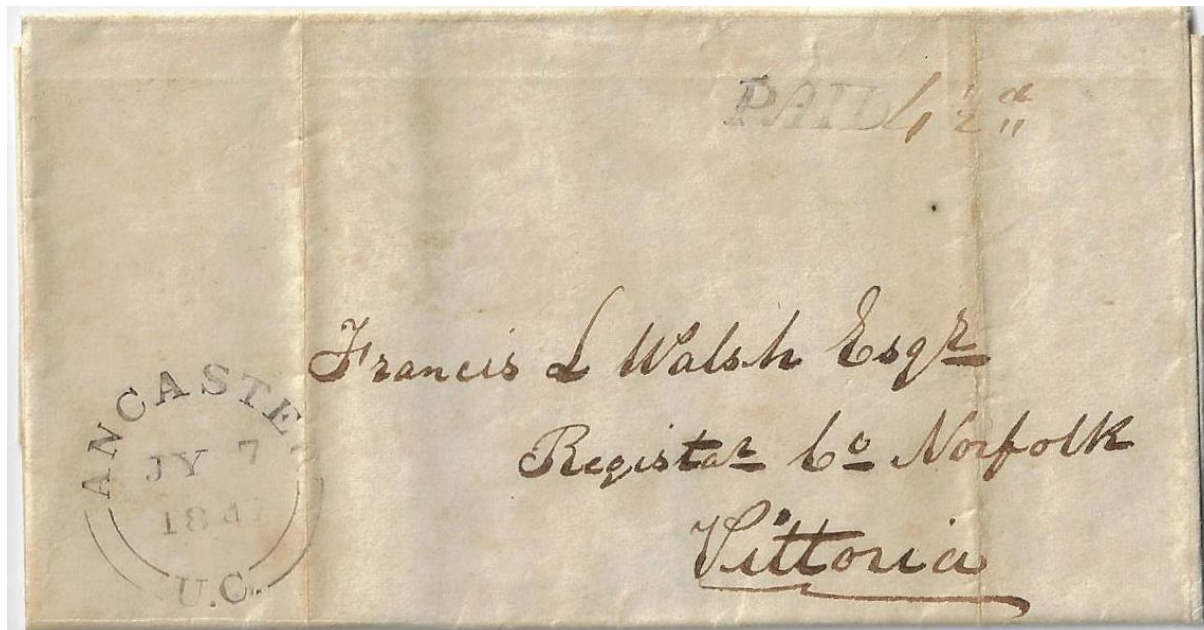 PAID 4 1/2 d
Francis L Walsh Esqr
Registar Co Norfolk
Vittoria
ANCASTER
JY 7
U.C.